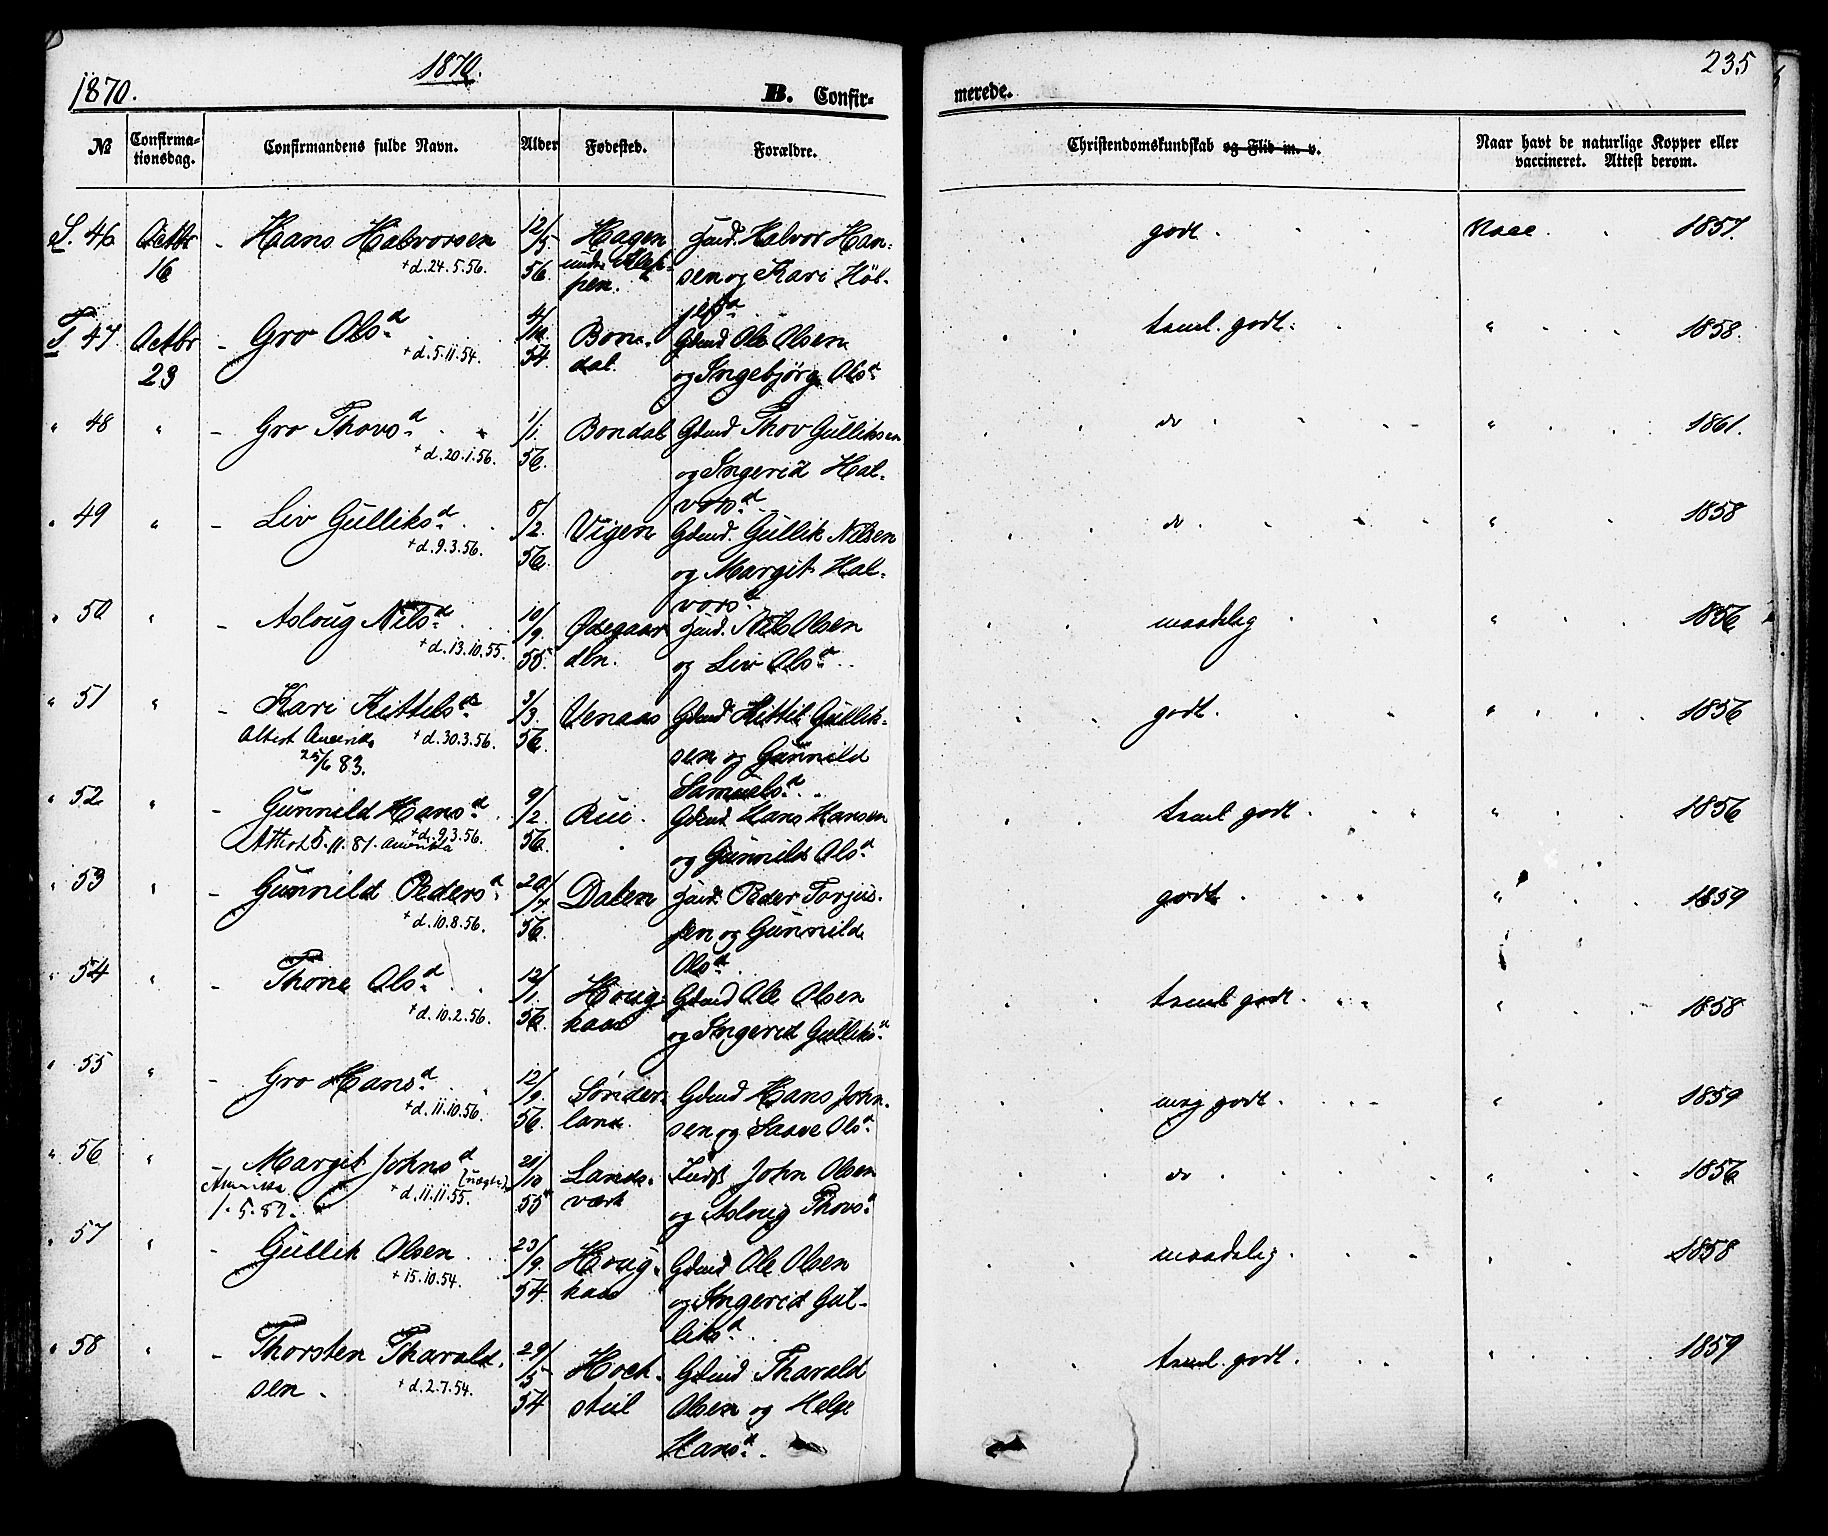 1870.
1870.
235
B. Confir-
merede.
№
Confirma-
tionsdag.
Confirmandens fulde Navn.
Alder
Fødested.
Forældre.
Christendomskundskab og Flid m. v.
Naar havt de naturlige Kopper eller
vaccineret. Attest derom.
S. 46 Octbr 16 - Hans Halvorsen 12/5 56 Hagen under
+ d. 24.5.56.
pen.
Halvor Han-
sen og Kari
godt 1857.
T 47 Octbr 23 - Gro Olsd 4/10 54 Bon-
dal.
+ d. 5.11.54.
Gdmd Ole Olsen
og Ingebjørg Olsd
teml. godt. " 1858.
" 48 " - Gro Thovsd 1/1. 56. Bondal
+ d. 20.1.56.
Gdmd Thov Gulliksen
og Ingerid Hal-
vorsd
do " 1861.
" 49 " - Liv Gulliksd 5/2. 56. Vigen
+ d. 9.3.56.
Gdmd. Gullik Nilsen
og Margit Hal-
vorsd
do " 1858
" 50 " - Aslaug Nilsd 10/9. 55. Ødegaar
den.
+ d. 13.10.55.
Nils Olsen
og Liv Olsd
maadelig " 1856
" 51 " - Kari Kittelsd 3/3. 56. Venaas
Attest Amerika + d. 30.3.56.
25/6 83.
Gdmd Kittil Gullik-
sen og Gunnild
Samuelsd
godt. " 1856
" 52 " - Gunnild Hansd 9/2. 56. Rue.
+ d. 9.3.56.
Attest 5.11.81. Amerika
Gdmd Hans Hansen
og Gunnild Olsd
teml godt " 1856
" 53 " - Gunnild Pedersd 20/7 56. Dalen
+ d. 10.8.56.
Peder Torjus-
sen og Gunnild
Olsd
godt " 1859
" 54 " - Thone Olsd 12/1. 56. Houg-
kaas
+ d. 10.2.56.
Gdmd Ole Olsen
og Ingerid Gulliksd
teml godt. " 1858
" 55 " - Gro Hansd 12/9. 56. Sønder-
land.
+ d. 11.10.56.
Gdmd Hans John-
sen og Saave Olsd
meg godt " 1859
" 56 " Margit Johnsd 55 Lands-
værk
Amerika + d. 11.11.55.
1.5.82.
John Olsen
og Aslaug Thovsd
do " 1856
" 57 " - Gullik Olsen 23/9. 54 Houg-
kaas
+ 15.10.54.
Gdmd Ole Olsen
og Ingerid Gul-
liksd
maadelig " 1858
" 58 " - Thorsten Tharald-
sen. 29/5 54
+ d. 2.7.54.
stul
Gdmd Tharald
Olsen og Helge
Hansd
teml. godt. " 1859